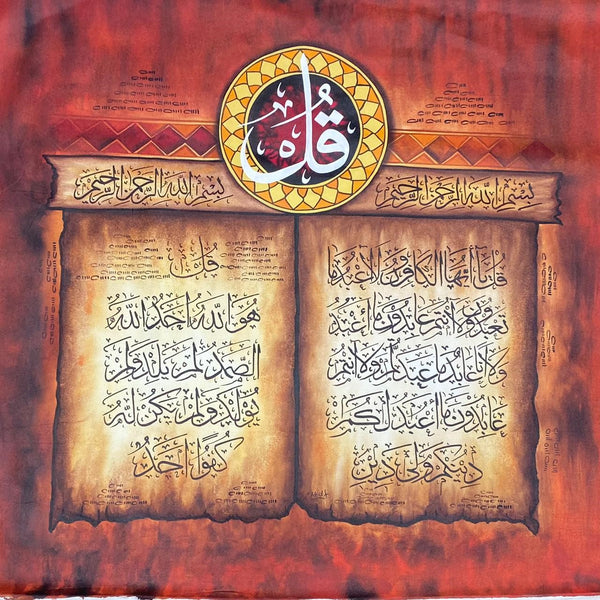 قُل
بِسْمِ اللهِ الرَّحْمٰنِ الرَّحِيْمِ
بِسْمِ اللهِ الرَّحْمٰنِ الرَّحِيْمِ
قُلْ يَا أَيُّهَا الْكَافِرُونَ لَا أَعْبُدُ مَا
تَعْبُدُونَ وَلَا أَنْتُمْ عَابِدُونَ مَا أَعْبُدُ
وَلَا أَنَا عَابِدٌ مَا عَبَدْتُمْ وَلَا أَنْتُمْ
عَابِدُونَ مَا أَعْبُدُ لَكُمْ
دِينُكُمْ وَلِيَ دِينِ
قُلْ
هُوَ اللهُ أَحَدٌ اللهُ
الصَّمَدُ لَمْ يَلِدْ وَلَمْ
يُولَدْ وَلَمْ يَكُنْ لَهُ
كُفُوًا أَحَدٌ